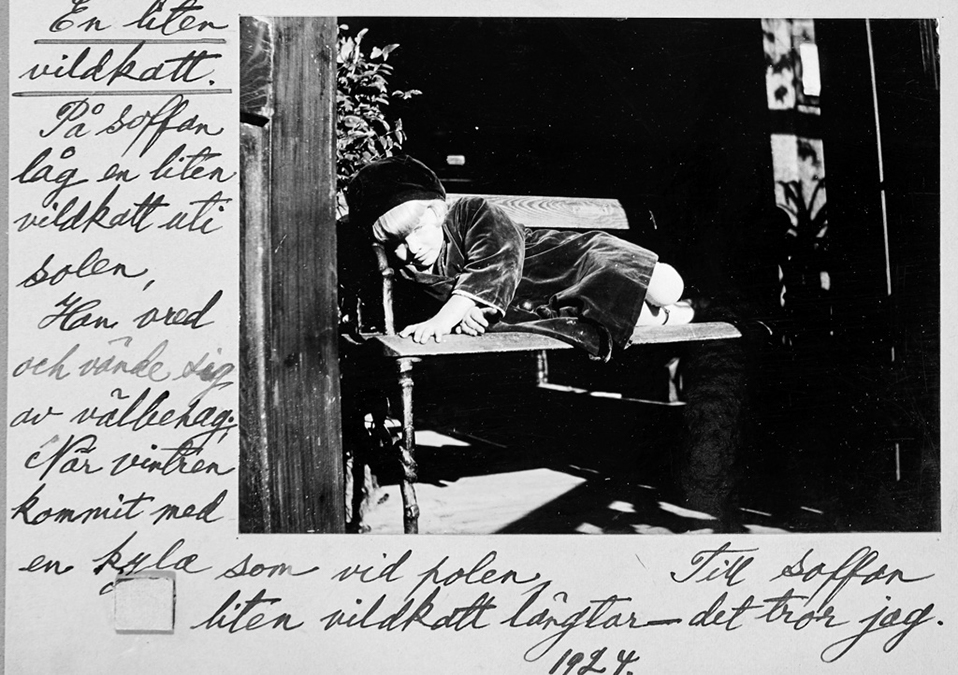 En liten
vildkatt.
På soffan
låg en liten
vildkatt uti
solen,
Han vred
och vände sig
av välbehag;
När vintren
kommit med
en kyla som vid polen,
Till soffan
liten vildkatt längtar — det tror jag.
1924.